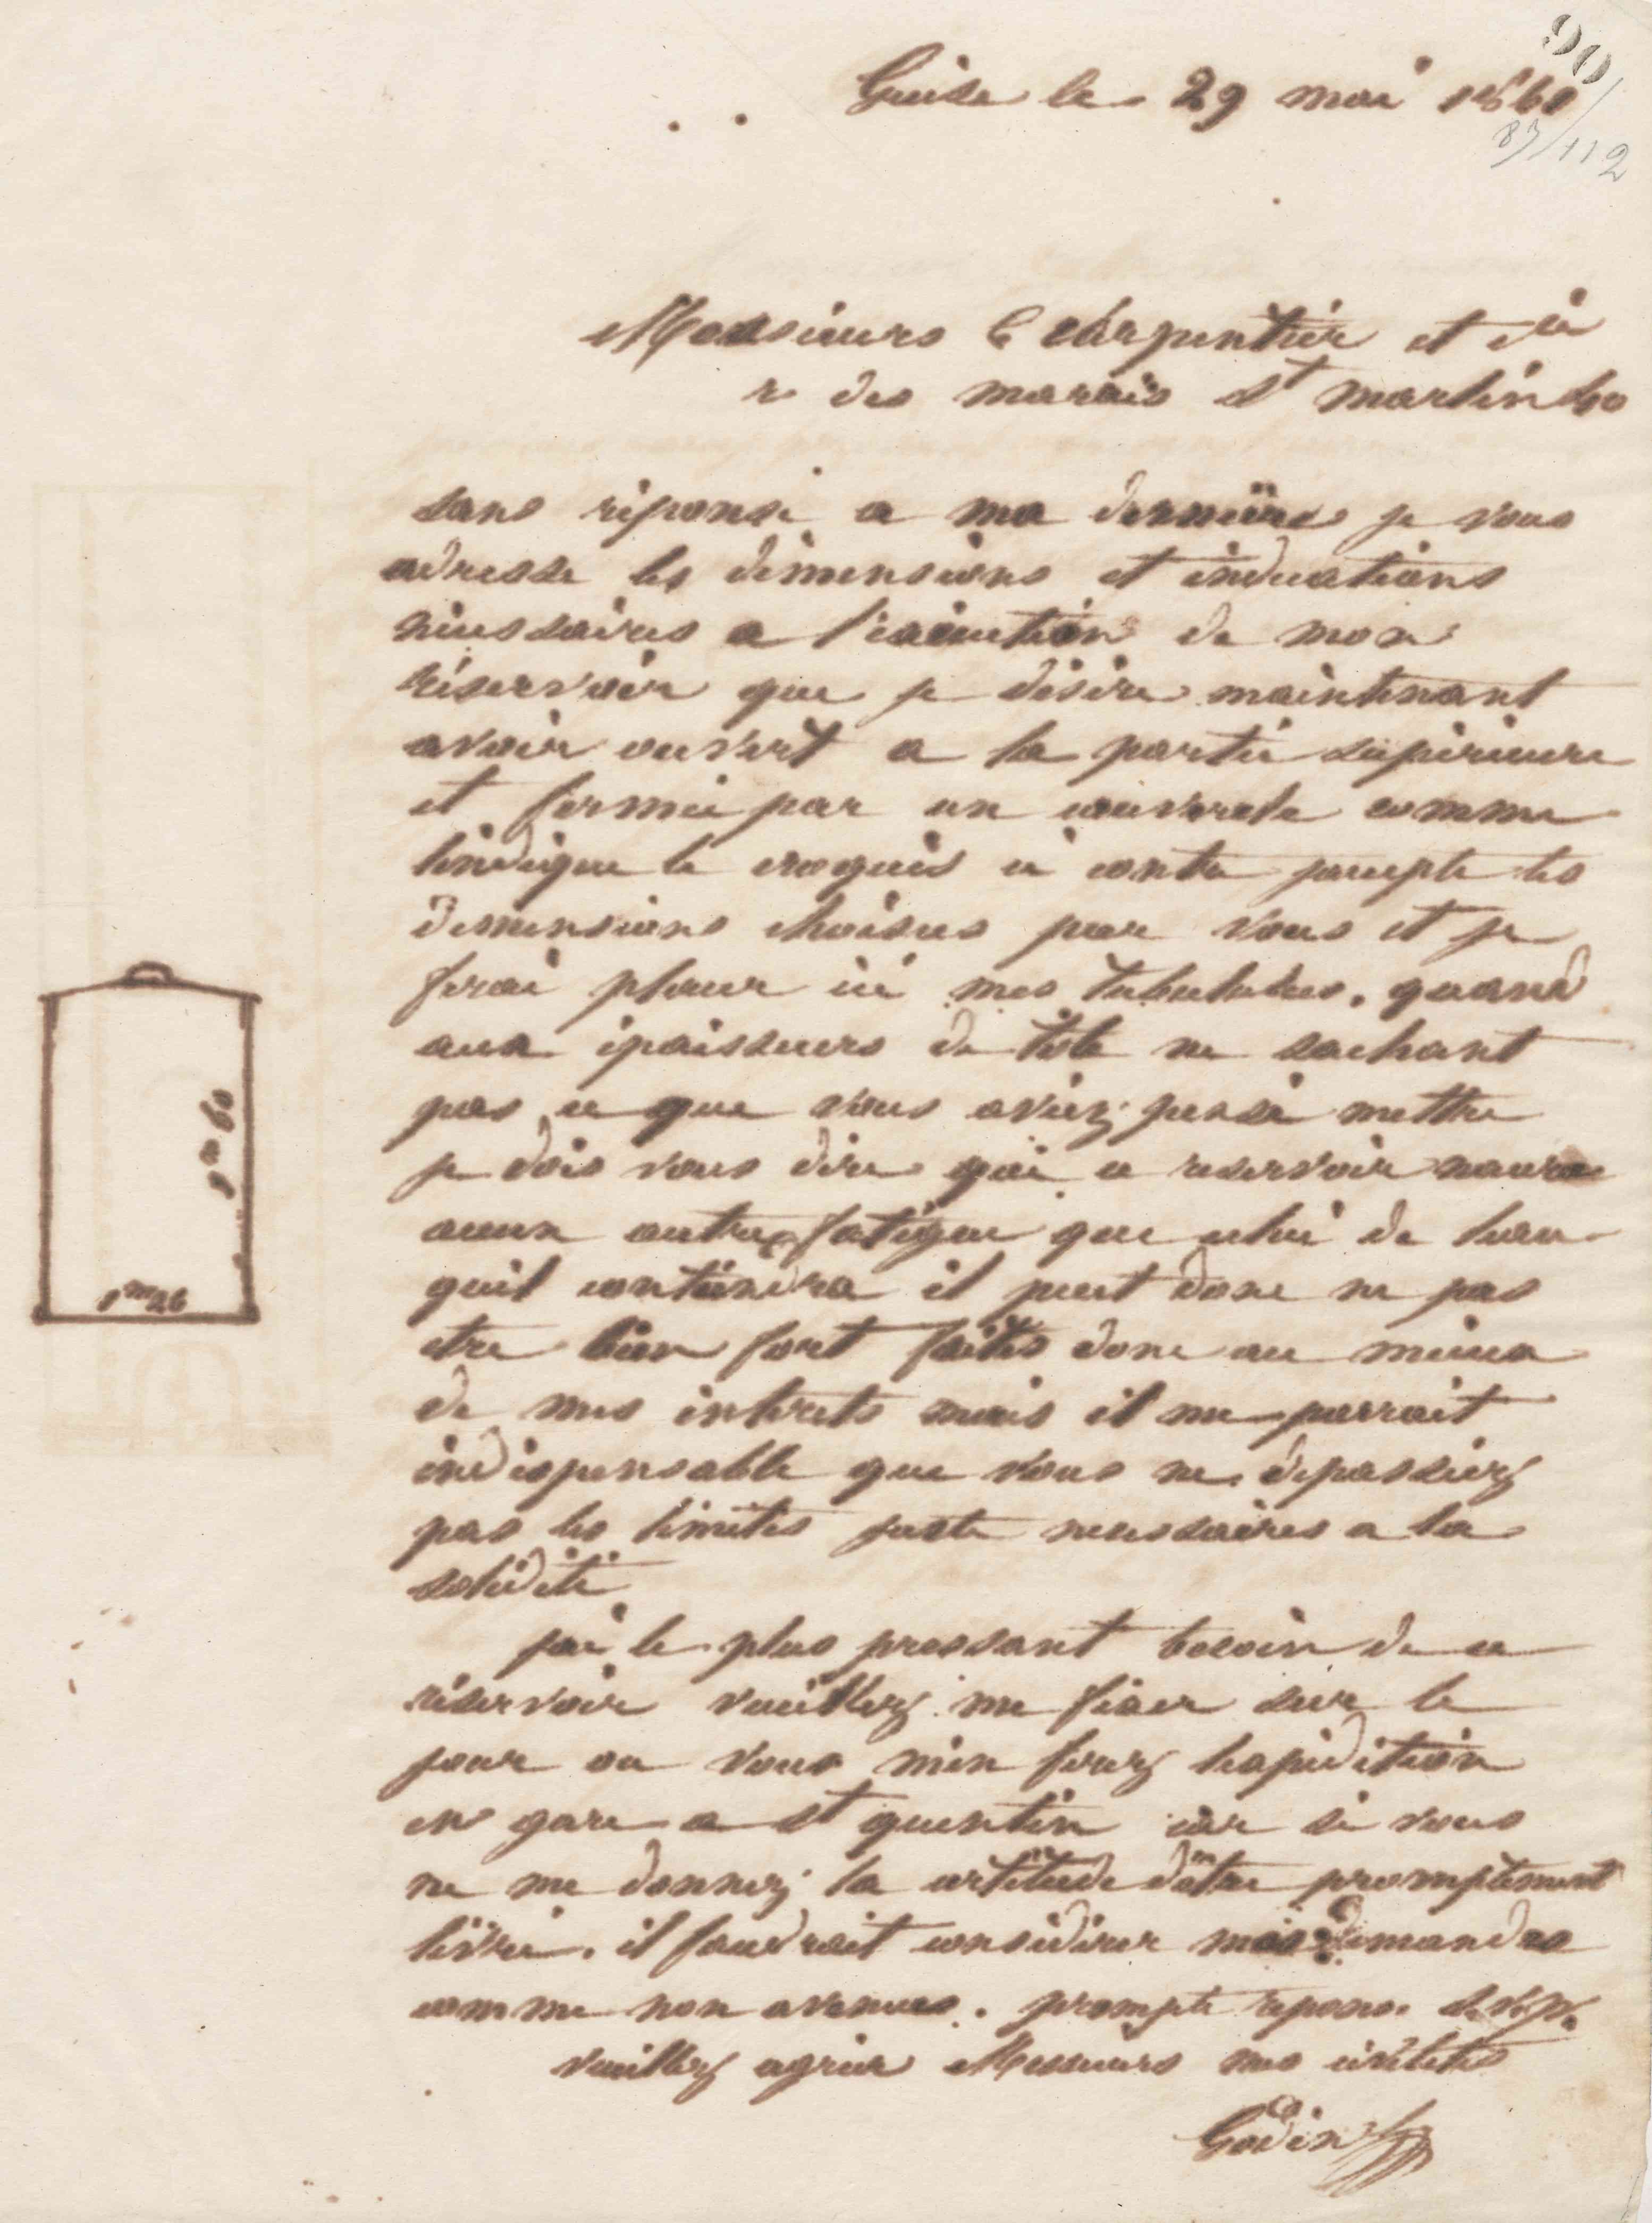 90
Guise le 29 mai 1860
87/112
Messieurs C Charpentier et Cie
r des marais St martin 40
sans réponse a ma dernière je vous
adresse les dimensions et indications
nécessaires a l'exécution de mon
réservoir que je désire maintenant
avoir ouvert a la partie supérieure
et fermée par un couvercle comme
lindique le croquis ci contre jaccepte les
dimensions choisies par vous et je
ferai placer ici mes tubulures. quand
aux épaisseurs de tôle ne sachant
pas ce que vous aviez pensé mettre
je dois vous dire que ce reservoir naura
aucun autre fatigue que celui de leau
quil contiendra il peut donc ne pas
etre bien fort faites donc au mieux
de mes intérets mais il me parrait
indispensable que vous ne dépassiez
pas les limites juste necessaires a la
solidité
jai le plus pressant besoin de ce
réservoir veuillez me fixer sur le
jour ou vous m'en ferez lexpédition
en gare a St quentin car si vous
ne me donnez la certitude dêtre promptement
livré. il faudrait considérer mes demandes
comme non avenues. prompte reponse s.v.p.
veuillez agréer Messieurs mes civilités
Godin
1m60
1m26